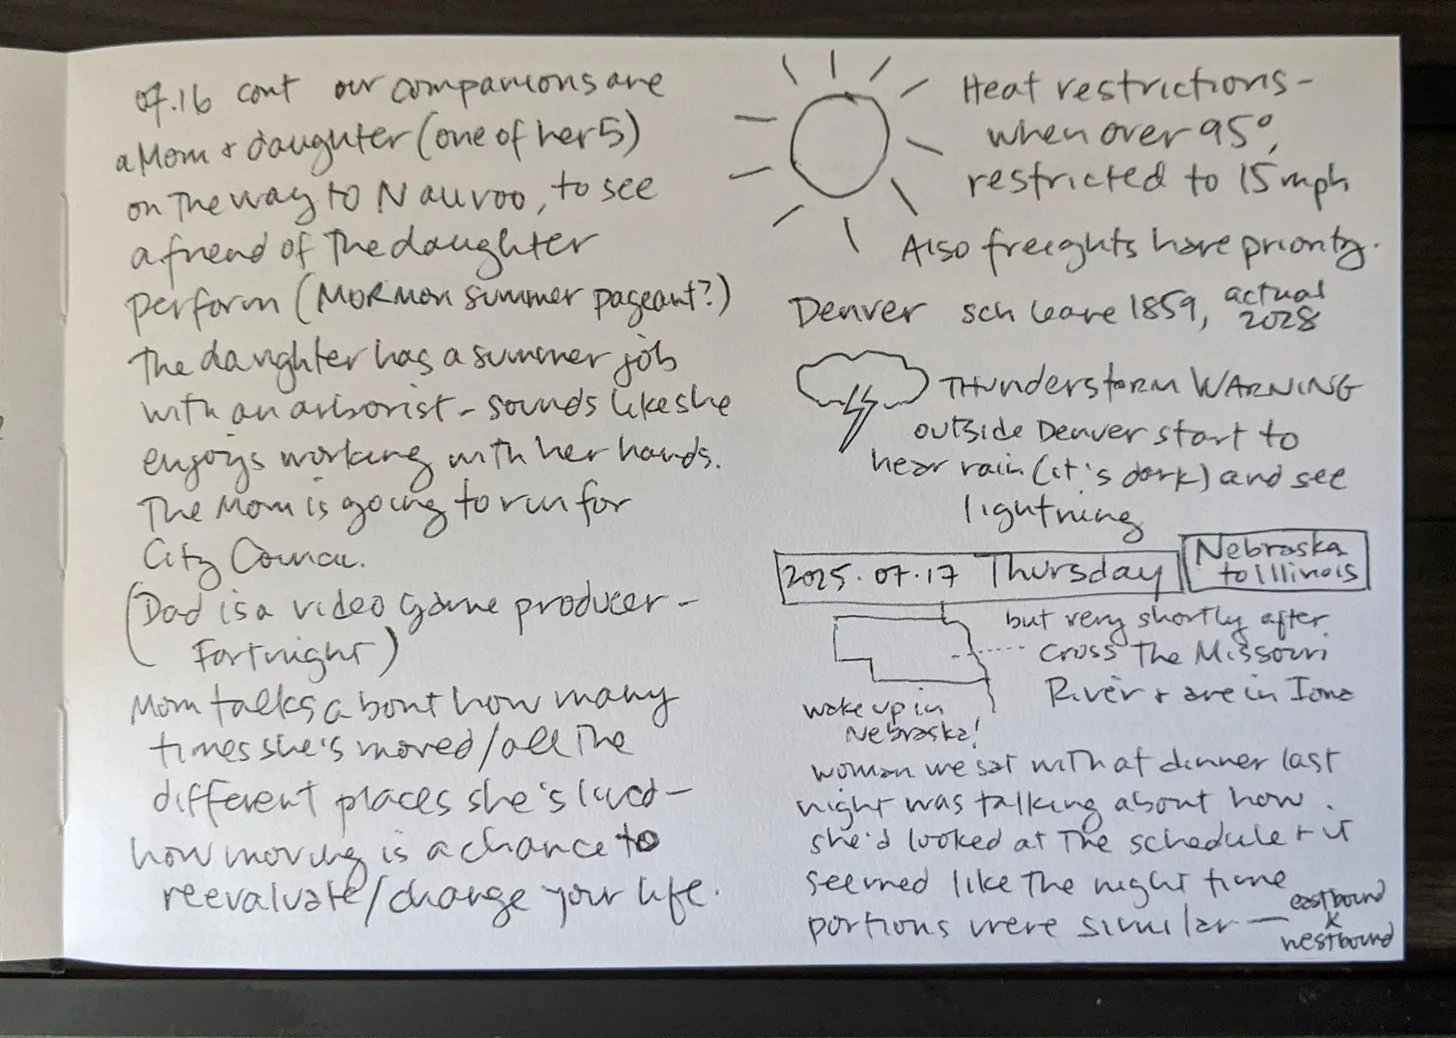 07.16 cont our companions are
a Mom & daughter (one of her 5)
on the way to Nauvoo, to see
a friend of the daughter
perform (MORMON summer pageant?)
The daughter has a summer job
with an arborist - sounds like she
enjoys working with her hands.
The Mom is going to run for
City Council.
(Dad is a video game producer -
Fortnight)
Mom talks about how many
times she's moved/all the
different places she's lived -
how moving is a chance to
reevaluate/change your life.
Heat restrictions -
when over 95°,
restricted to 15 mph
Also freights have priority.
Denver sch leave 1859, actual
2028
THunderstorm WARNING
outside Denver start to
hear rain (it's dark) and see
lightning
2025.07.17 Thursday
Nebraska
to Illinois
but very shortly after
cross the Missouri
River & are in Iowa
wake up in
Nebraska!
woman we sat with at dinner last
night was talking about how
she'd looked at the schedule & it
seemed like the night time
portions were similar — eastbound
&
westbound